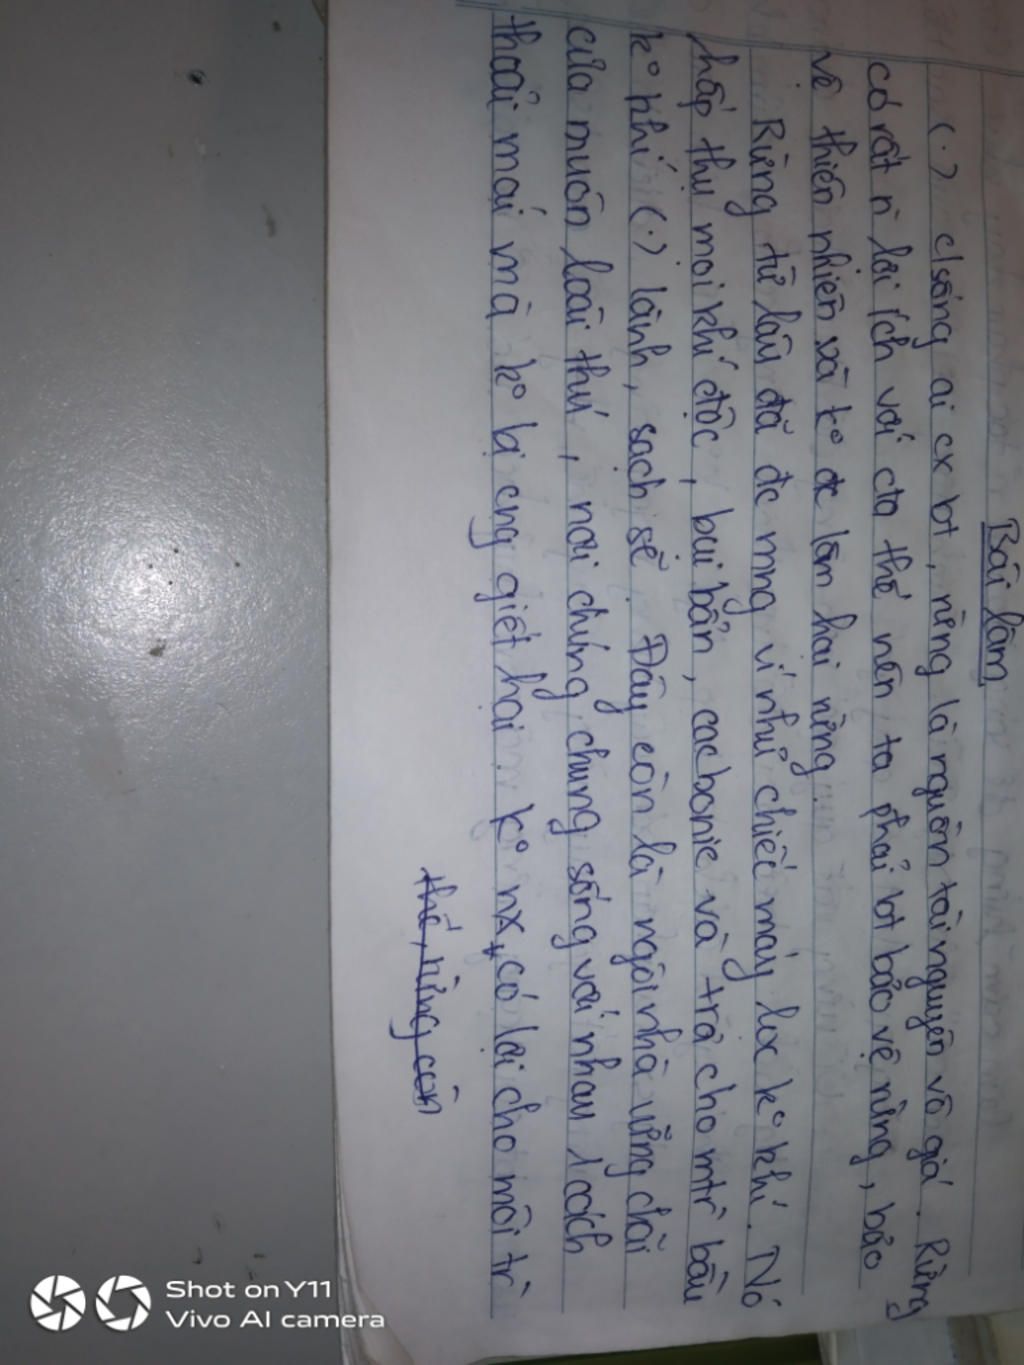 Bài làm
(.) c/sống ai cx bt, rừng là nguồn tài nguyên vô giá. Rừng
có rất n` lợi ích với cta thế nên ta phải bt bảo vệ rừng, bảo
vê thiên nhiên và kº đc làm hại rừng.
Rừng từ lâu đã đc mng ví như chiếc máy lọc kº khí. Nó
hấp thu mọi khí độc, bụi bẩn, cacbonic và trả cho mtr` bầu
kº khí (.) lành, sạch sẽ. Đây còn là ngôi nhà vững chãi
của muôn loài thú, nơi chúng chung sống với nhau 1 cách
thoải mái mà kº bị cng giết hại. Kº nx, có lợi cho môi tr`
thế, rừng còn
Shot on Y11
Vivo AI camera